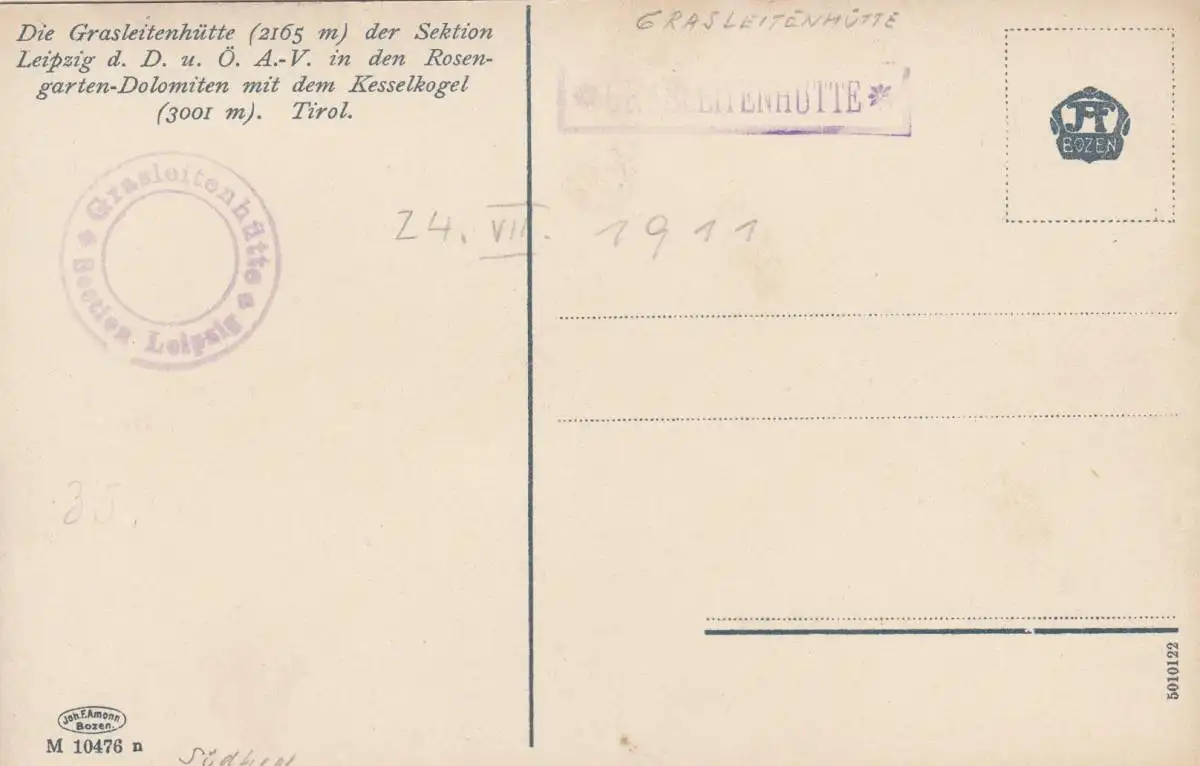 Die Grasleitenhütte (2165 m) der Sektion
Leipzig d. D. u. Ö. A.-V. in den Rosen-
garten-Dolomiten mit dem Kesselkogel
(3001 m). Tirol.
GRASLEITENHÜTTE
* GRASLEITENHÜTTE *
BOZEN
Grasleitenhütte
Section Leipzig
24. VII. 1911
35.
Joh. F. Amonn
Bozen.
M 10476 n
5010122